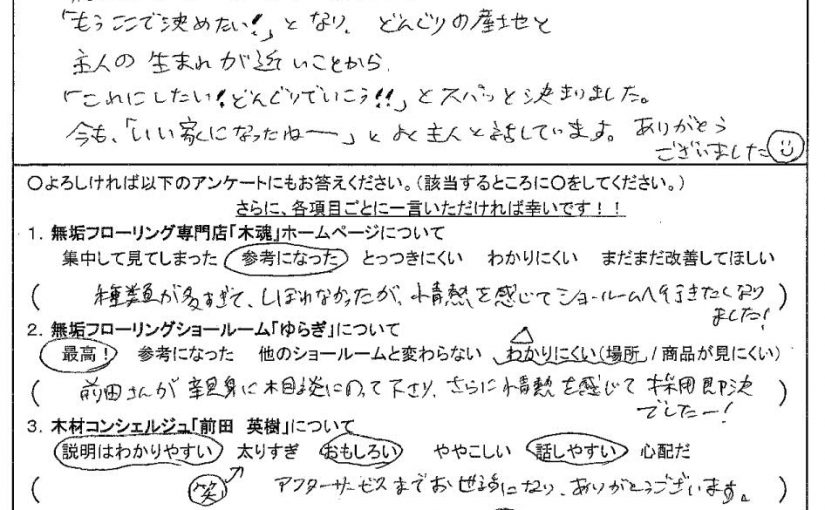 「もうここで決めたい！」となり、どんぐりの産地と
主人の生まれが近いことから、
「これにしたい！どんぐりでいこう!!」とスパッと決まりました。
今も、「いい家になったねー」とよく主人と話しています。ありがとう
ございました
〇よろしければ以下のアンケートにもお答えください。（該当するところに〇をしてください。）
さらに、各項目ごとに一言いただければ幸いです！！
1．無垢フローリング専門店「木魂」ホームページについて
集中して見てしまった 参考になった とっつきにくい わかりにくい まだまだ改善してほしい
（ 種類が多すぎて、しぼれなかったが、情熱を感じてショールームへ行きたくなり
ました！ ）
2．無垢フローリングショールーム「ゆらぎ」について
最高！ 参考になった 他のショールームと変わらない わかりにくい（場所 / 商品が見にくい）
（ 前田さんが親身に相談にのって下さり、さらに情熱を感じて採用即決
でしたー！ ）
3．木材コンシェルジュ「前田 英樹」について
説明はわかりやすい 太りすぎ おもしろい ややこしい 話しやすい 心配だ
（ 笑 アフターサービスまでお世話になり、ありがとうございます。 ）